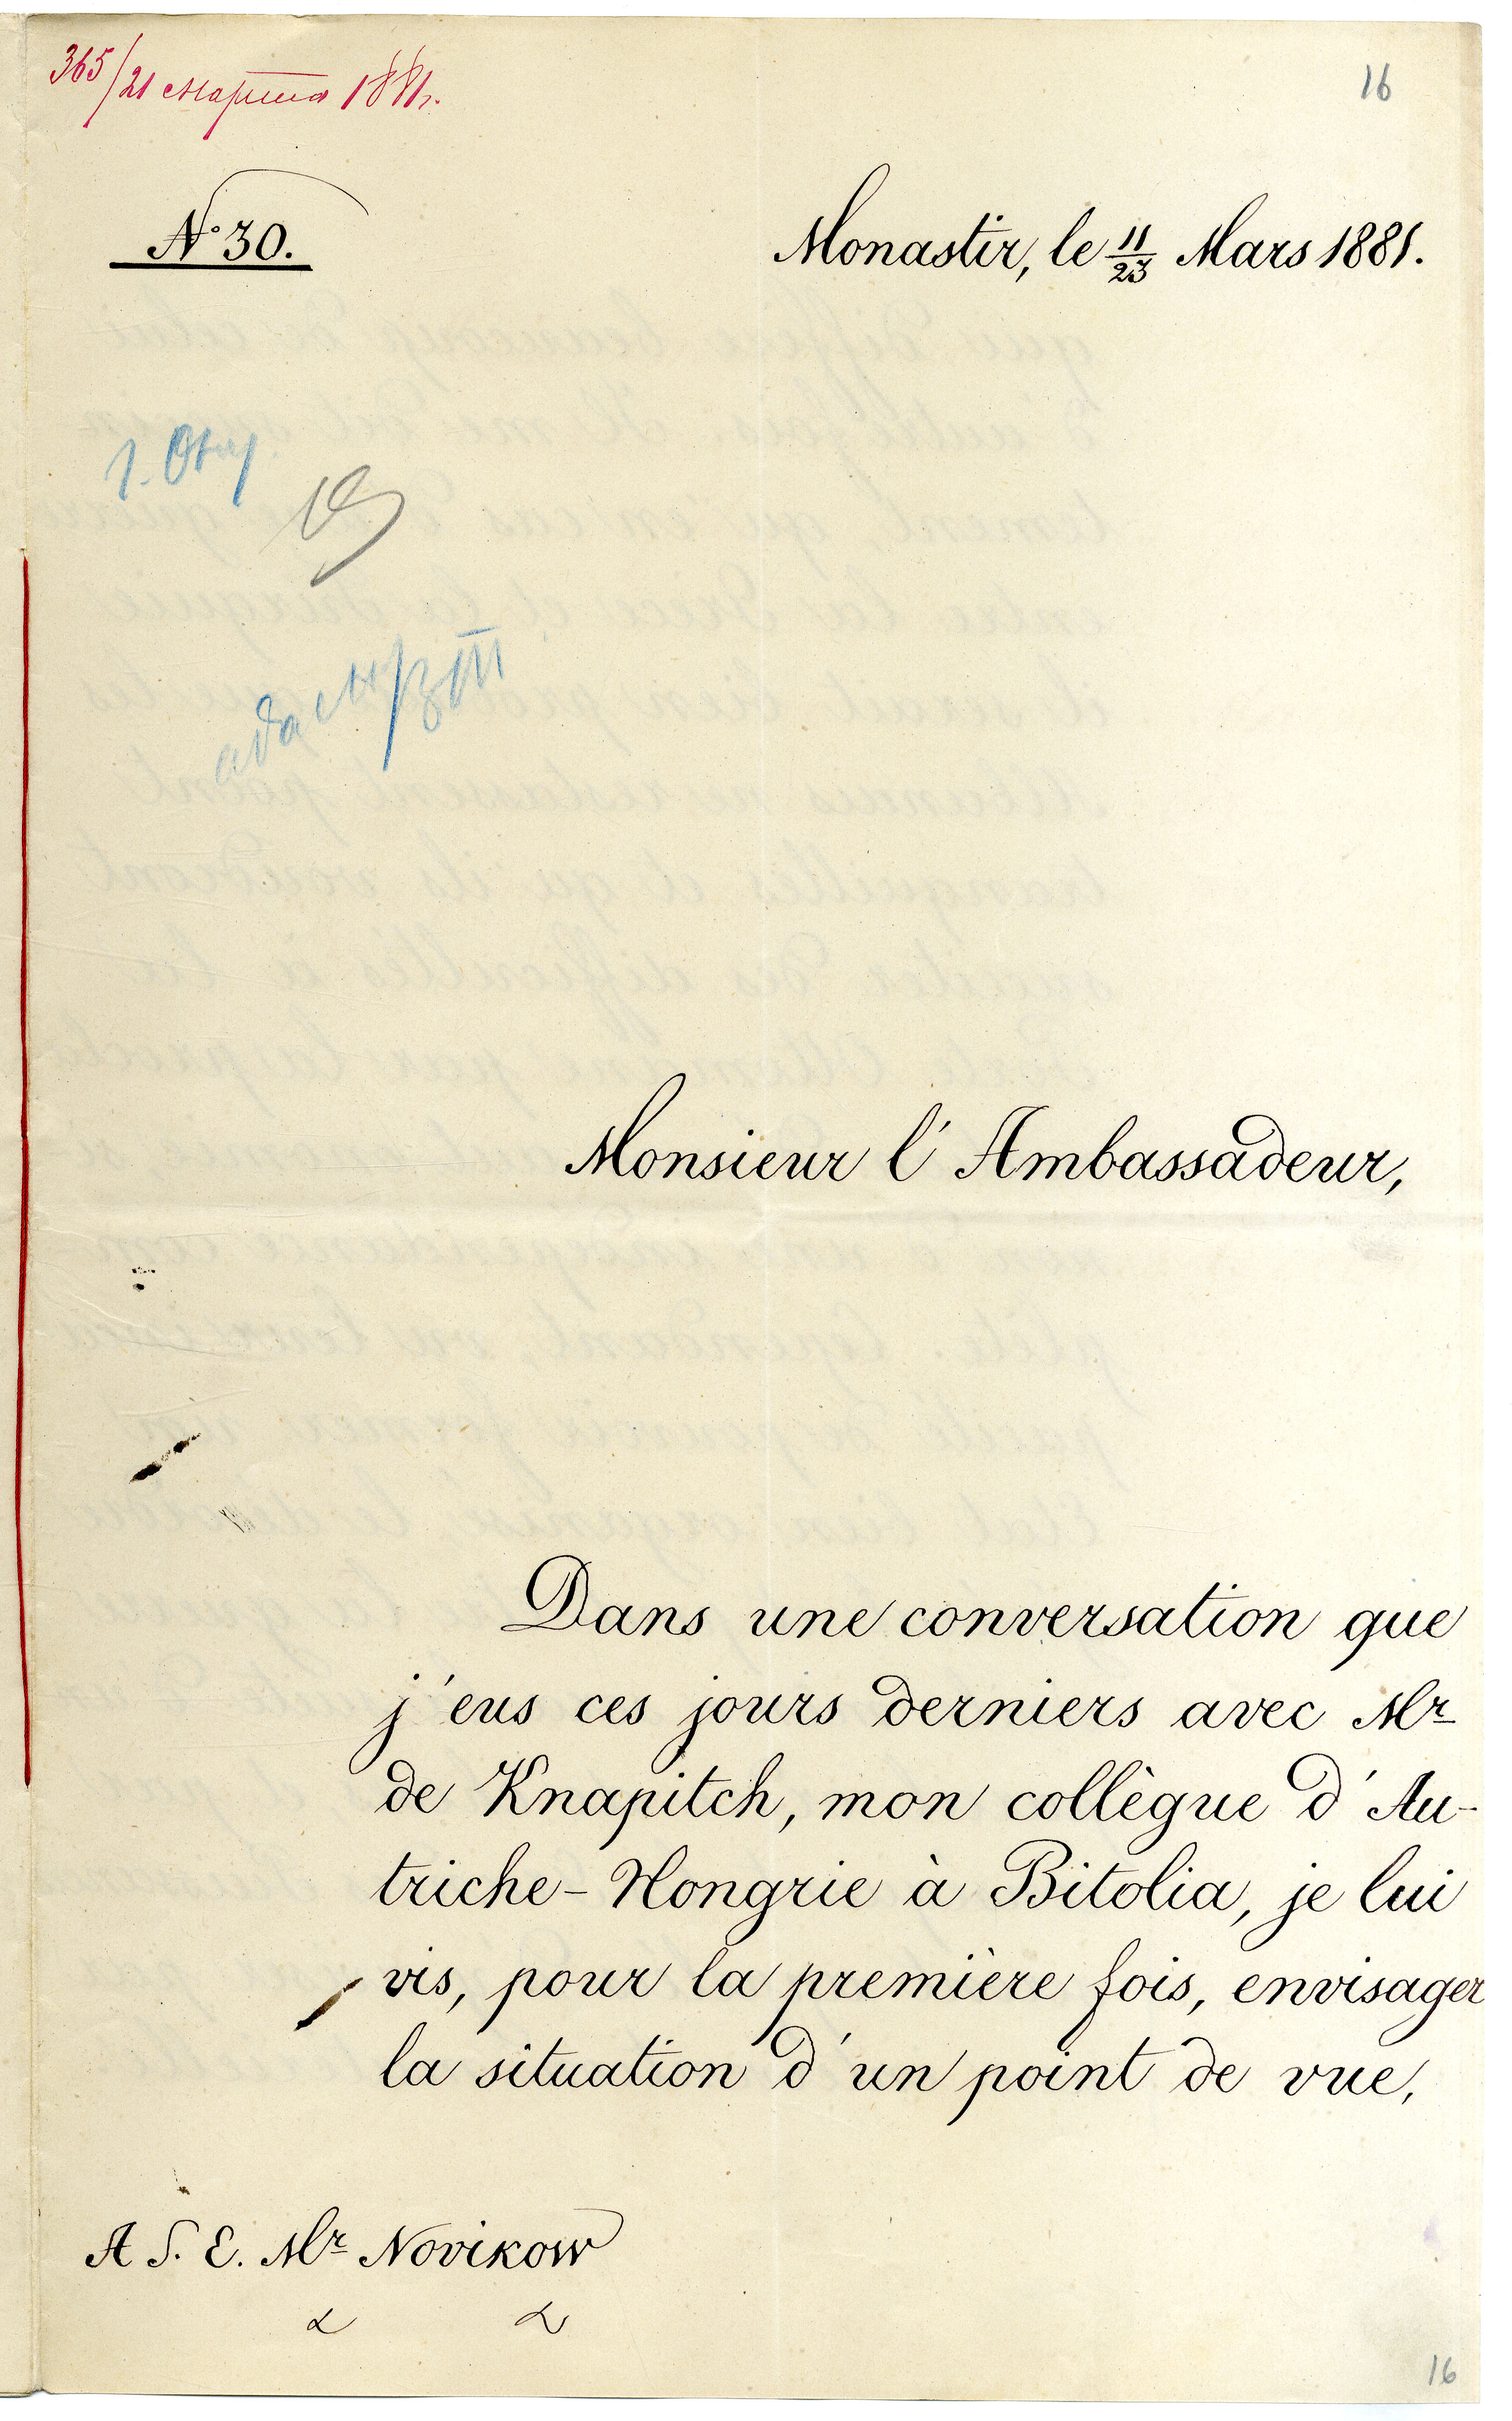 365/21 Марта 1881 г.
16
№ 30.
Monastir, le 11/23 Mars 1881.
Monsieur l'Ambassadeur,
Dans une conversation que
j'eus ces jours derniers avec Mr
de Knapitch, mon collègue d'Au-
triche-Hongrie à Bitolia, je lui
vis, pour la première fois, envisager
la situation d'un point de vue,
A S. E. Mr Novikow
16